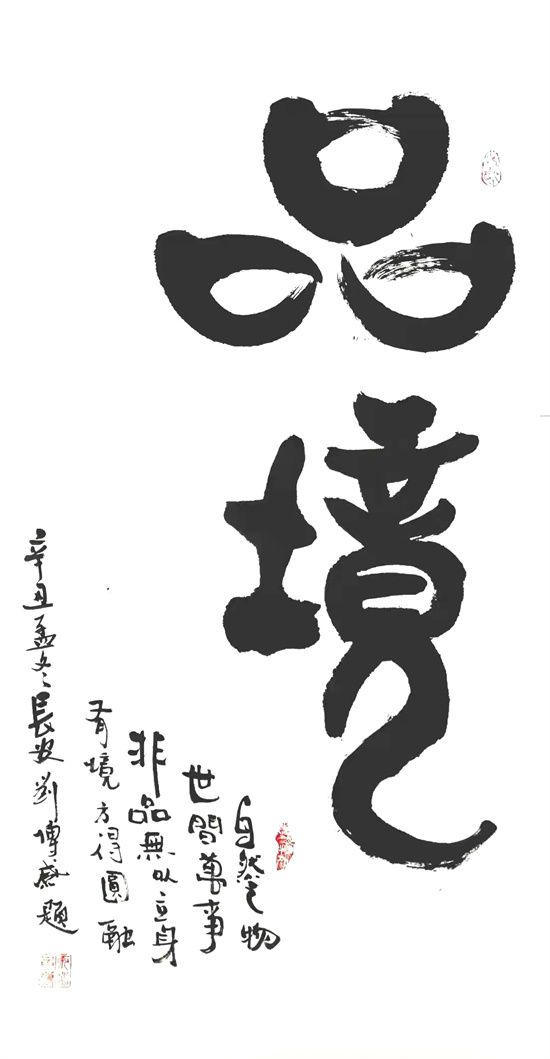 品境
自然之物
世間萬事
非品無以立身
有境方得圓融
辛丑孟冬長安劉傳感題